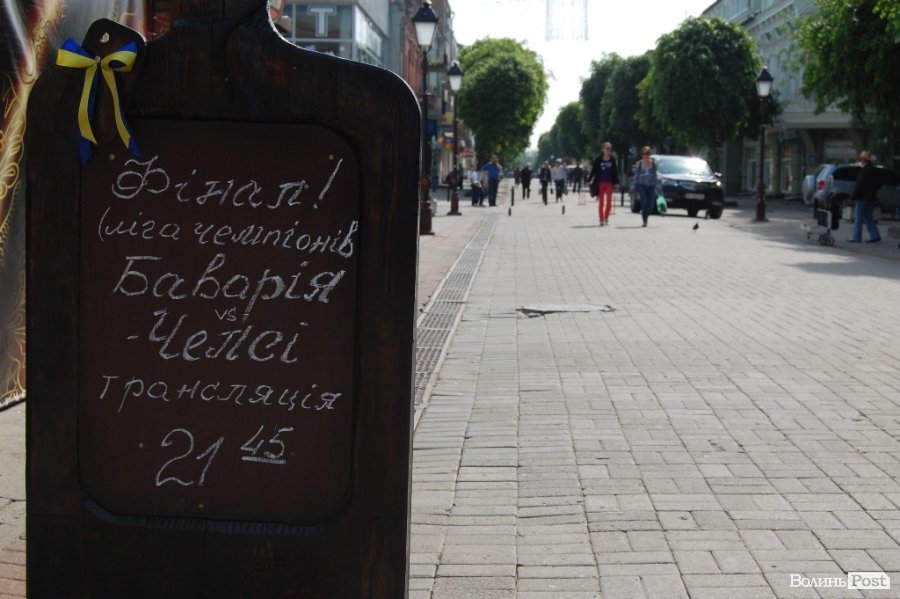 Т
Фінал!
(ліга чемпіонів
Баварія
vs
- Челсі
трансляція
21 45
ВолиньPost